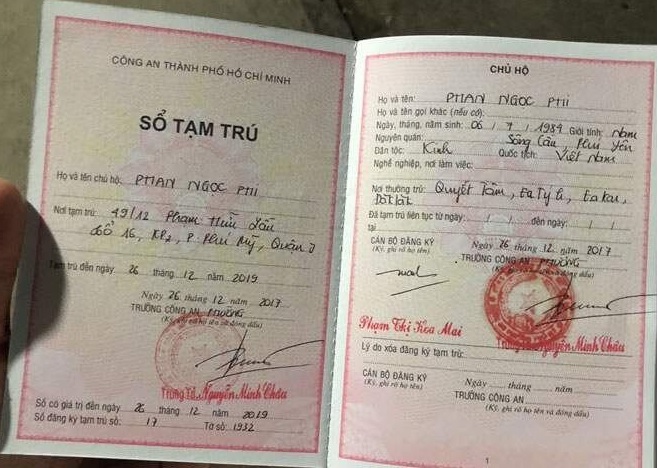 CÔNG AN THÀNH PHỐ HỒ CHÍ MINH
SỔ TẠM TRÚ
Họ và tên chủ hộ: PHAN NGỌC PHI
Nơi tạm trú: 49/12 Phạm Hữu Lầu
tổ 16, KP2, P. Phú Mỹ, Quận 7
Tạm trú đến ngày 26 tháng 12 năm 2019
Ngày 26 tháng 12 năm 2017
TRƯỞNG CÔNG AN PHƯỜNG
(Ký, ghi rõ họ tên và đóng dấu)
Trung Tá Nguyễn Minh Châu
Sổ có giá trị đến ngày 26 tháng 12 năm 2019
Số đăng ký tạm trú số: 17 Tờ số: 1932
CHỦ HỘ
Họ và tên: PHAN NGỌC PHI
Họ và tên gọi khác (nếu có):
Ngày, tháng, năm sinh: 06 / 7 / 1984 Giới tính: Nam
Nguyên quán: Sông Cầu, Phú Yên
Dân tộc: Kinh Quốc tịch: Việt Nam
Nghề nghiệp, nơi làm việc:
Nơi thường trú: Quyết Tâm, Ea Tý h, Ea Kar,
Đắk Lắk
Đã tạm trú liên tục từ ngày: / / đến ngày: / /
tại
Ngày 26 tháng 12 năm 2017
CÁN BỘ ĐĂNG KÝ TRƯỞNG CÔNG AN PHƯỜNG
(Ký, ghi rõ họ tên) (Ký, ghi rõ họ tên và đóng dấu)
Phạm Thị Hoa Mai Trung Tá Nguyễn Minh Châu
Lý do xóa đăng ký tạm trú:
Ngày ...... tháng ...... năm
CÁN BỘ ĐĂNG KÝ TRƯỞNG CÔNG AN
(Ký, ghi rõ họ tên) (Ký, ghi rõ họ tên và đóng dấu)
1